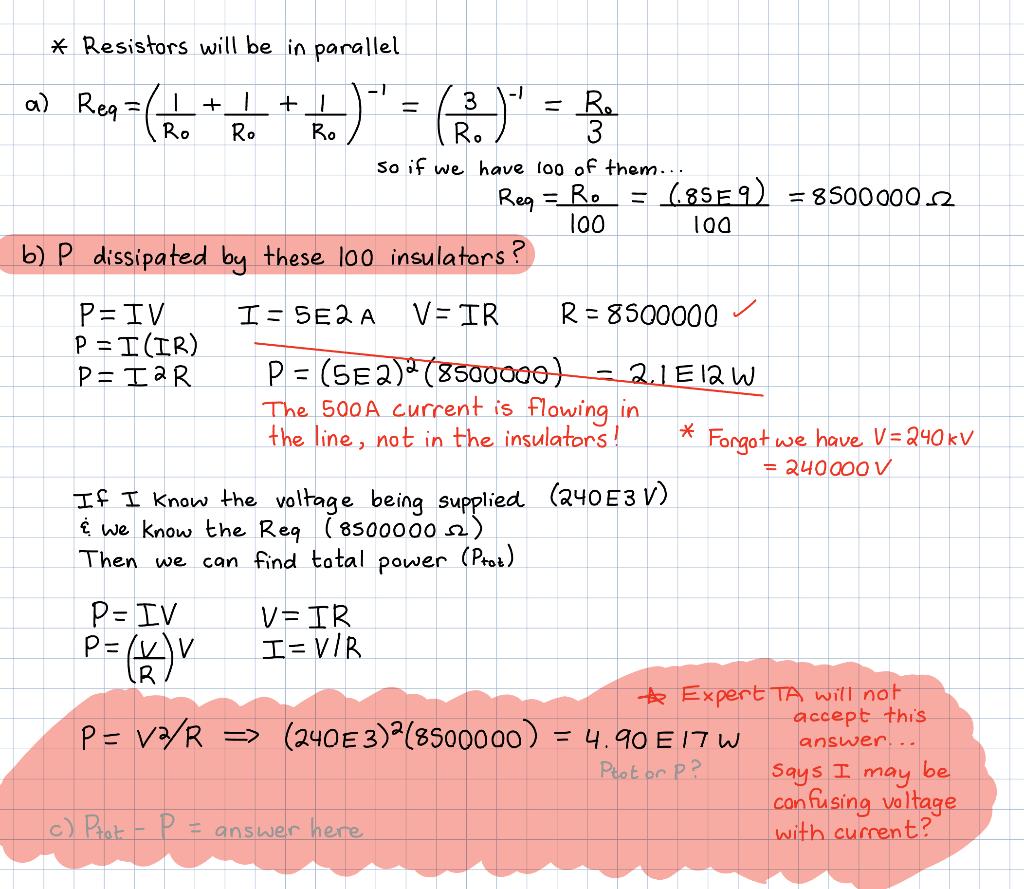 * Resistors will be in parallel
a) Req = (1/R₀ + 1/R₀ + 1/R₀)⁻¹ = (3/R₀)⁻¹ = R₀/3
so if we have 100 of them...
Req = R₀/100 = (.85E9)/100 = 8500000 Ω
b) P dissipated by these 100 insulators?
P = IV I = 5E2 A V = IR R = 8500000 ✓
P = I(IR)
P = I²R P = (5E2)²(8500000) = 2.1E12 W
The 500A current is flowing in
the line, not in the insulators!
* Forgot we have V = 240 kV
= 240000 V
If I know the voltage being supplied (240E3 V)
& we know the Req (8500000 Ω)
Then we can find total power (Ptot)
P = IV V = IR
P = (V/R)V I = V/R
☆ Expert TA will not
accept this
answer...
P = V²/R ⇒ (240E3)²(8500000) = 4.90E17 W
Ptot or P?
Says I may be
confusing voltage
with current?
c) Ptot - P = answer here